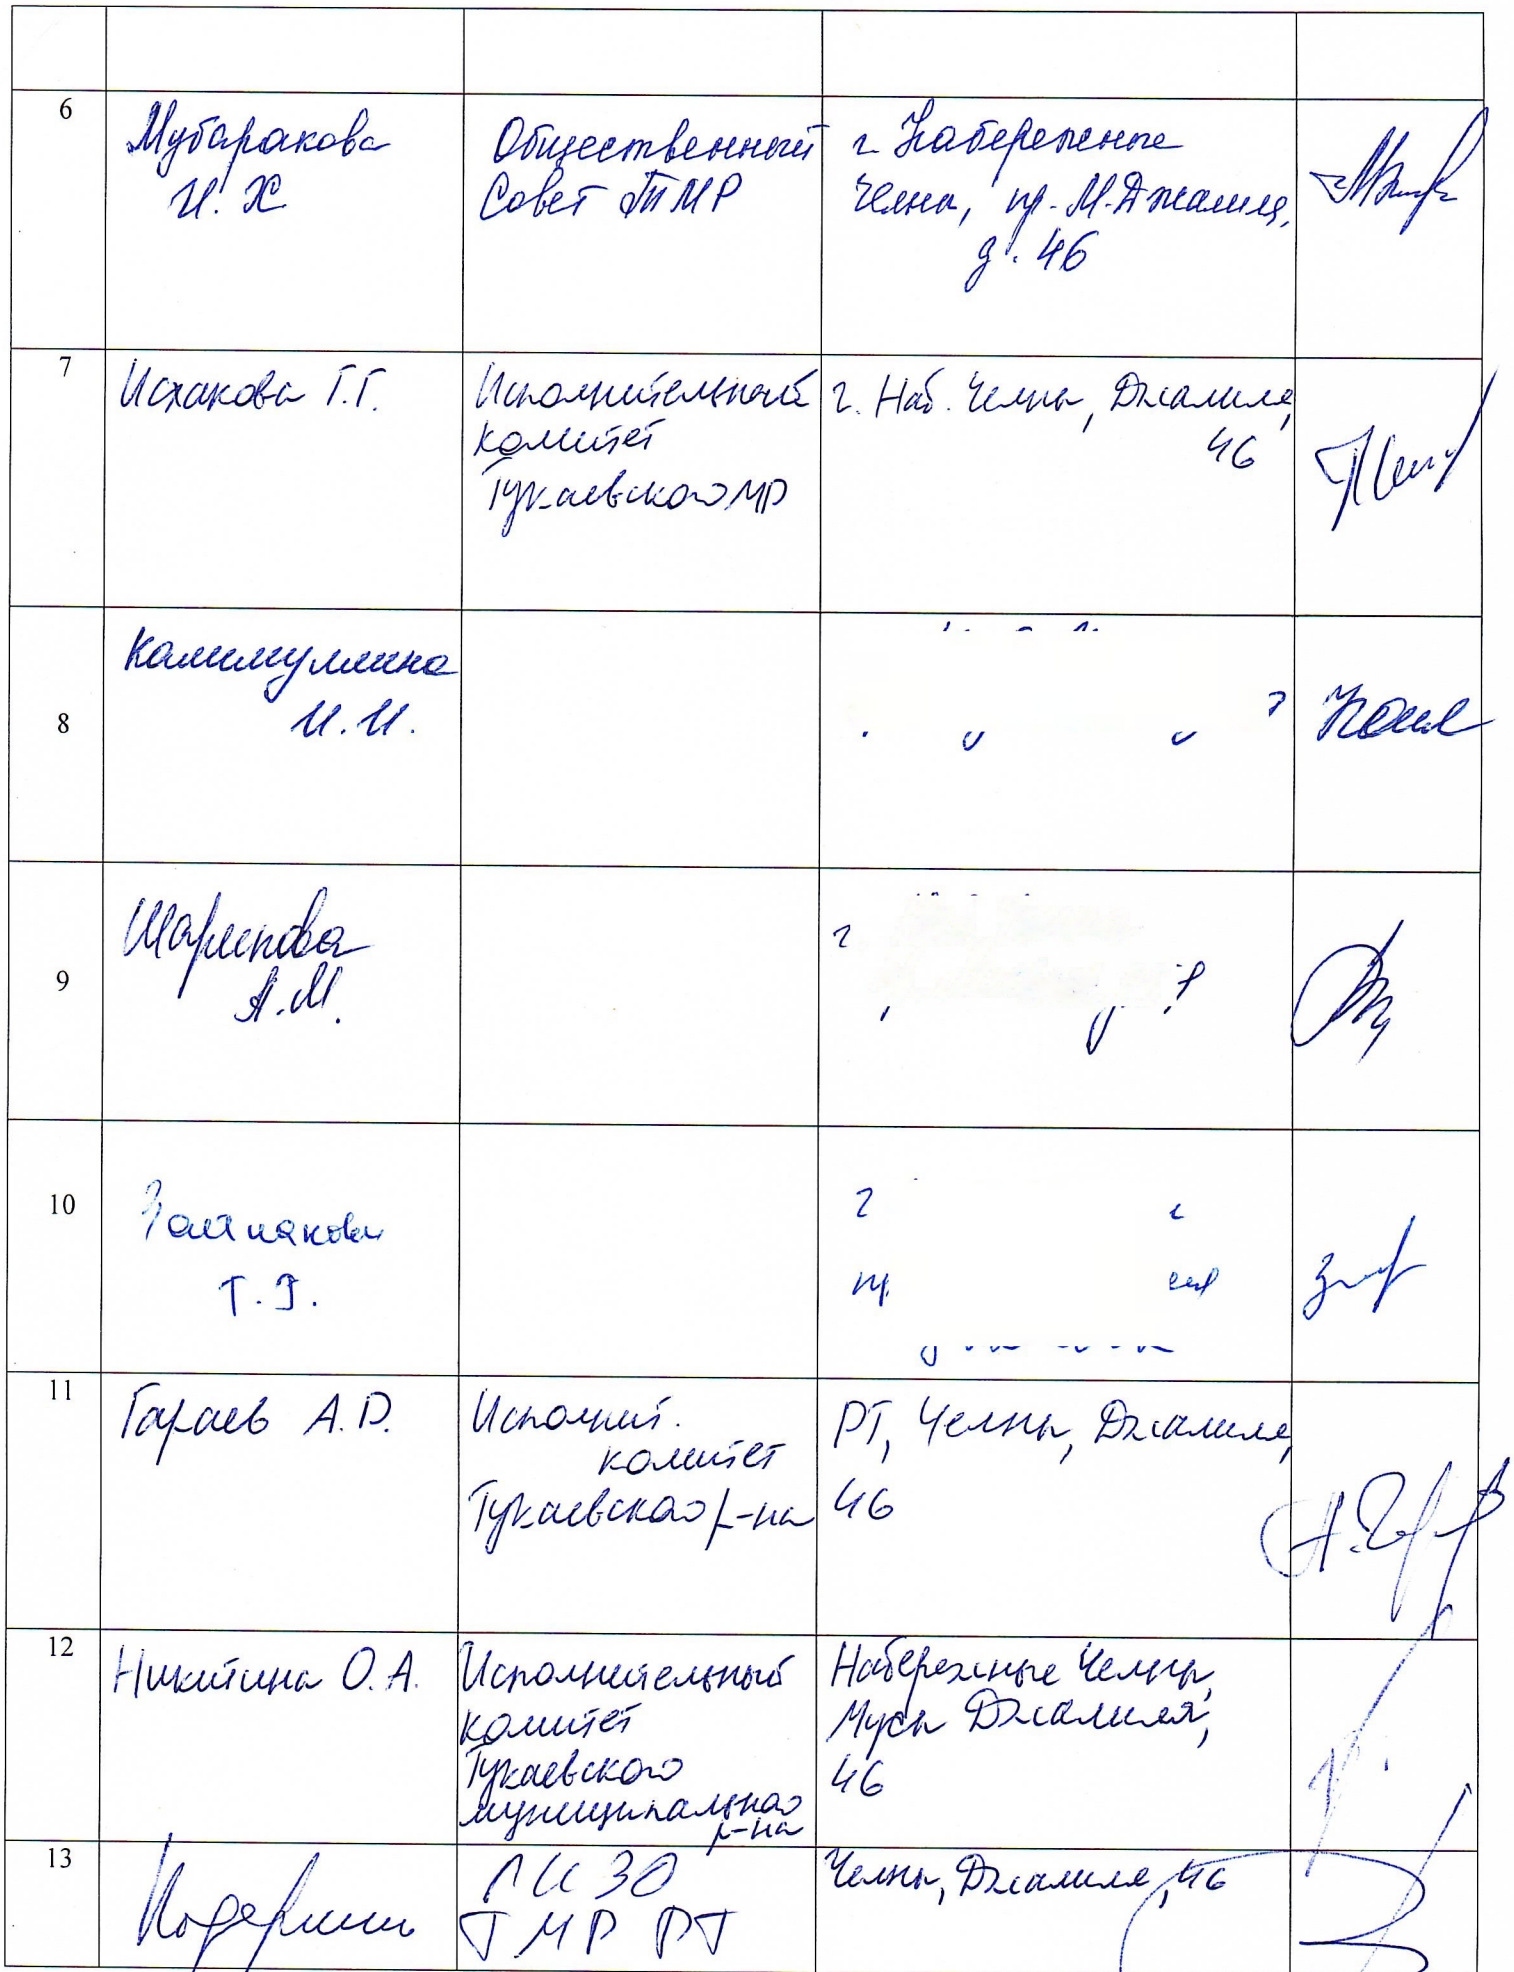 6
Мубаракова
И. Х
Общественный
Совет ТМР
г. Набережные
Челны, пр. М. Джалиля,
д. 46
7
Исхакова Г.Г.
Исполнительный
комитет
Тукаевского МР
г. Наб. Челны, Джалиля,
46
8
Калимуллина
И.И.
9
Шарипова
А.М.
10
Т.Г.
г
пр.
11
Гараев А.Р.
Исполнит.
комитет
Тукаевского р-на
РТ, Челны, Джалиля,
46
12
Никитина О.А.
Исполнительный
комитет
Тукаевского
муниципального
р-на
Набережные Челны,
Мусы Джалиля,
46
13
ТМР РТ
Челны, Джалиля, 46